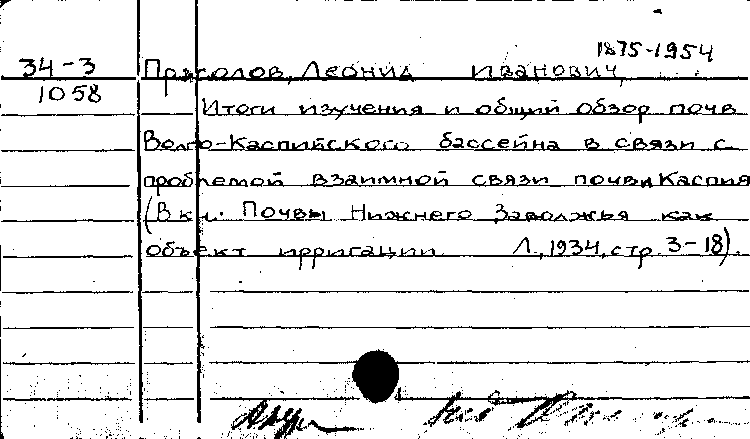 1875-1954
34-3 Прасолов, Леонид Иванович,
1058
Итоги изучения и общий обзор почв
Волго-Каспийского бассейна в связи с
проблемой взаимной связи почв и Каспия
(В кн. Почвы Нижнего Заволжья как
объект ирригации Л., 1934, стр. 3-18).